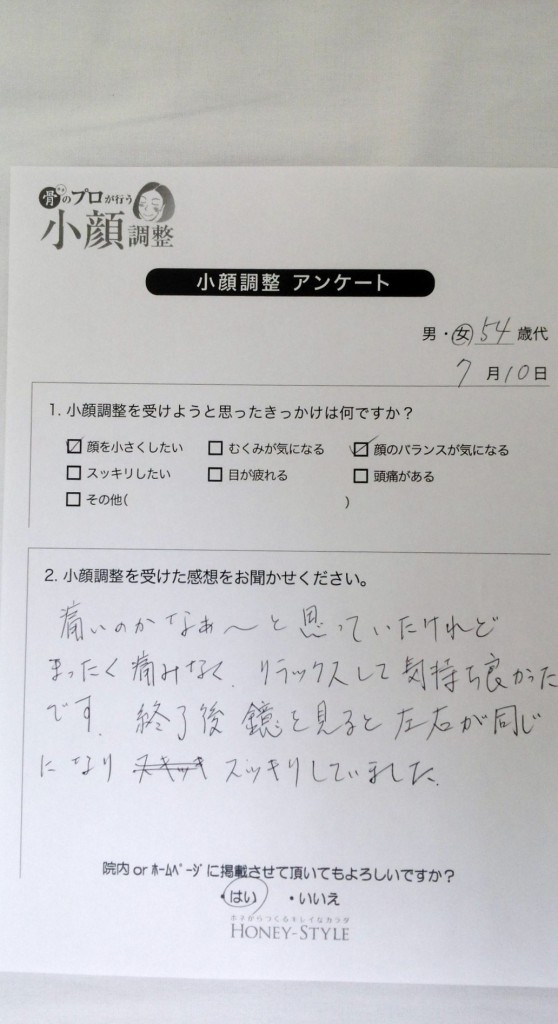 骨のプロが行う
小顔調整
小顔調整 アンケート
男・女 54 歳代
7月10日
1. 小顔調整を受けようと思ったきっかけは何ですか？
顔を小さくしたい むくみが気になる 顔のバランスが気になる
スッキリしたい 目が疲れる 頭痛がある
その他( )
2. 小顔調整を受けた感想をお聞かせください。
痛いのかなぁ〜と思っていたけれど
まったく痛みなく、リラックスして気持ち良かった
です。終了後 鏡を見ると左右が同じ
になり スッキリしていました。
院内 or ホームページに掲載させて頂いてもよろしいですか？
・はい ・いいえ
ホネからつくるキレイなカラダ
HONEY-STYLE